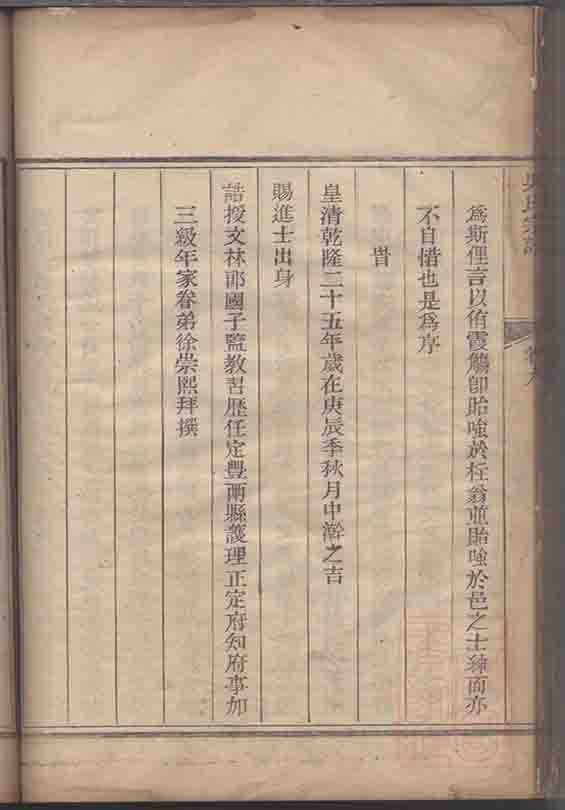 吳氏宗譜
爲斯俚言以侑霞觴卽貽嗤於枉翁並貽嗤於邑之士紳而亦
不自惜也是爲序
旹
皇清乾隆二十五年歲在庚辰季秋月中澣之吉
賜進士出身
誥授文林郎國子監敎習歷任定豐兩縣護理正定府知府事加
三級年家眷弟徐崇熙拜撰